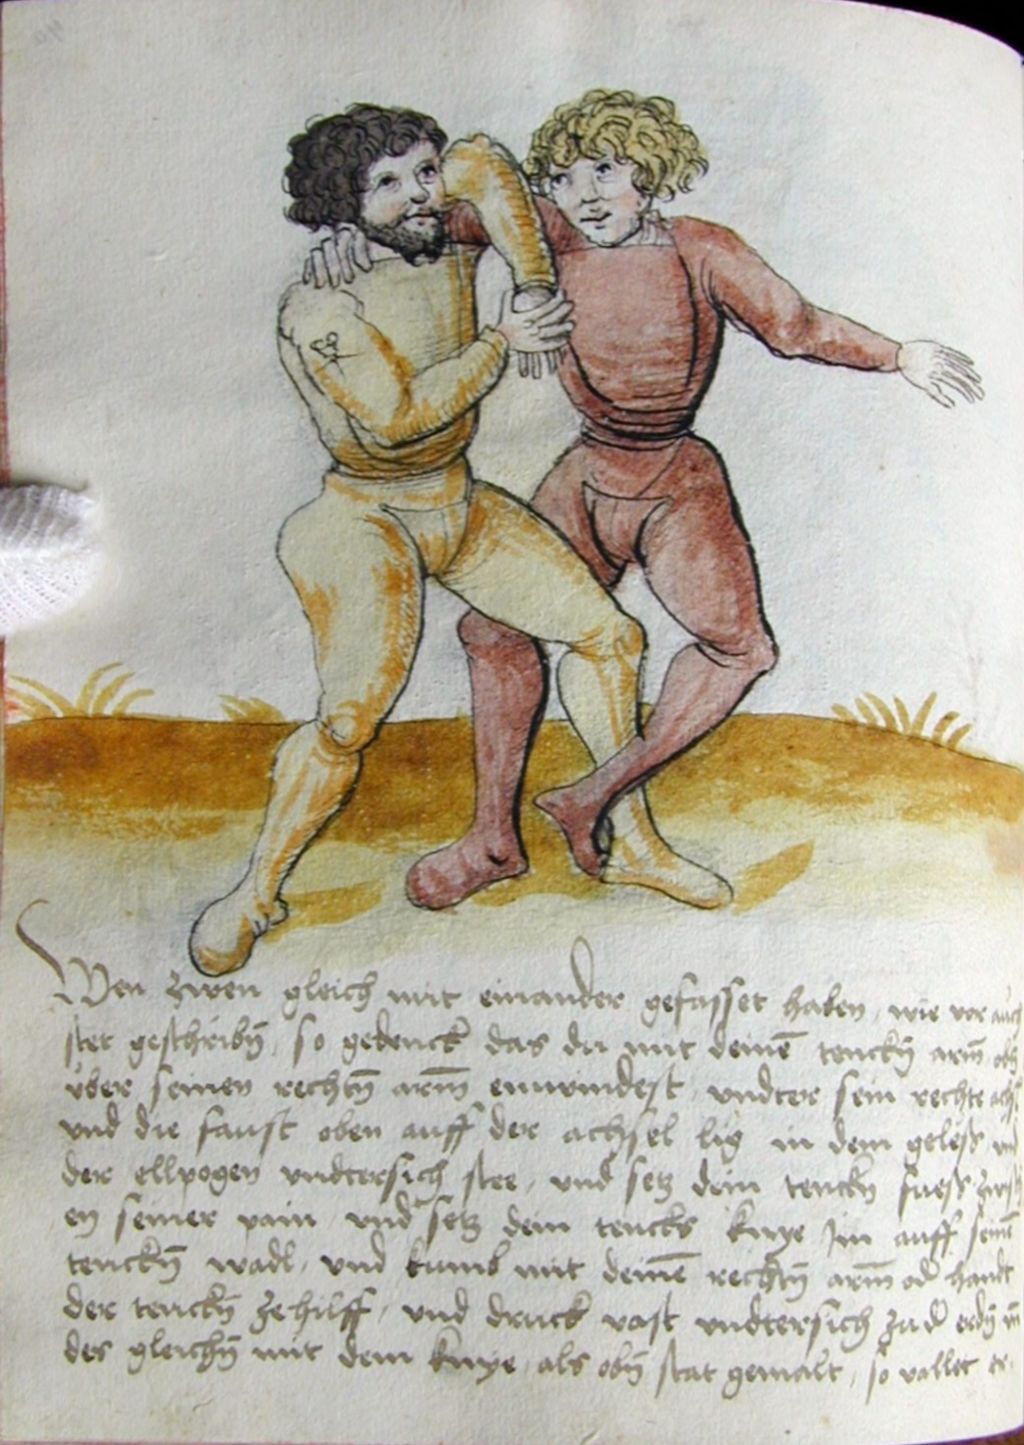 Wen zwen gleich mit einander gefasset haben, wie vor auch
stet geschribn̄, so gedenck das du mit deinē tenckn̄ arm̄ obn̄
vber seinen rechtn̄ arm̄ einwindest, vndter sein rechte achs
vnd die faust oben auff der achsel lig in dem geleß vnd
der ellpogen vndtersich stee, vnd setz dein tenckn̄ fueß zwisch
en seiner pain, vnd setz dein tencks knye im auff seinē
tenckn̄ wadl, vnd kumb mit deinē rechtn̄ arm̄ od̄ handt
der tenckn̄ ze hilff, vnd druck vast vndtersich zu d̄ erdn̄
des gleichn̄ mit dem knye, als obn̄ stat gemalt, so vallet er.